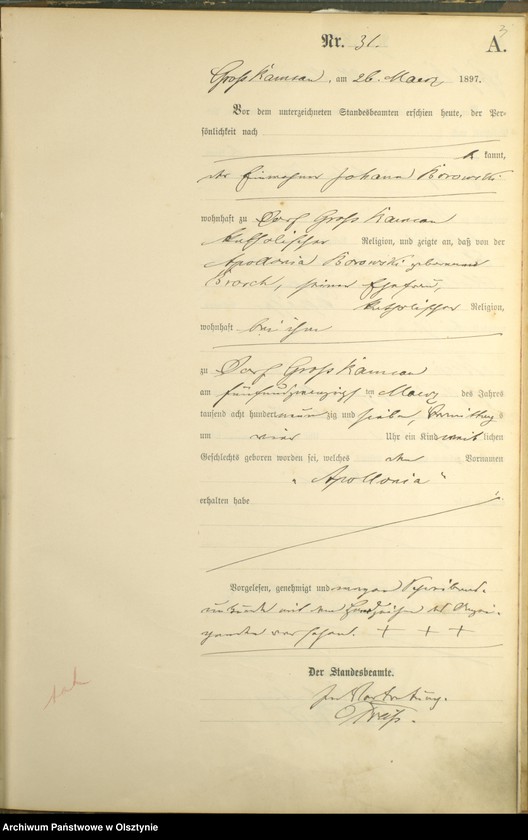 3
Nr. 31.
A.
Gross Kamsan, am 26. Maerz 1897.
Vor dem unterzeichneten Standesbeamten erschien heute, der Per-
sönlichkeit nach
be kannt,
der Einwohner Johann Borowski
wohnhaft zu Dorf Gross Kamsan
katholischer Religion, und zeigte an, daß von der
Apollonia Borowski geborenen
, seiner Ehefrau,
katholischer Religion,
wohnhaft bei ihm
zu Dorf Gross Kamsan
am fünfundzwanzigsten Maerz des Jahres
tausend acht hundert neunzig und sieben, Vormittags
um vier Uhr ein Kind weiblichen
Geschlechts geboren worden sei, welches den Vornamen
"Apollonia"
erhalten habe.
Vorgelesen, genehmigt und wegen Schreibens-
unkunde mit dem Handzeichen des Anzei-
genden versehen. + + +
Der Standesbeamte.
In Vertretung.
Archiwum Państwowe w Olsztynie